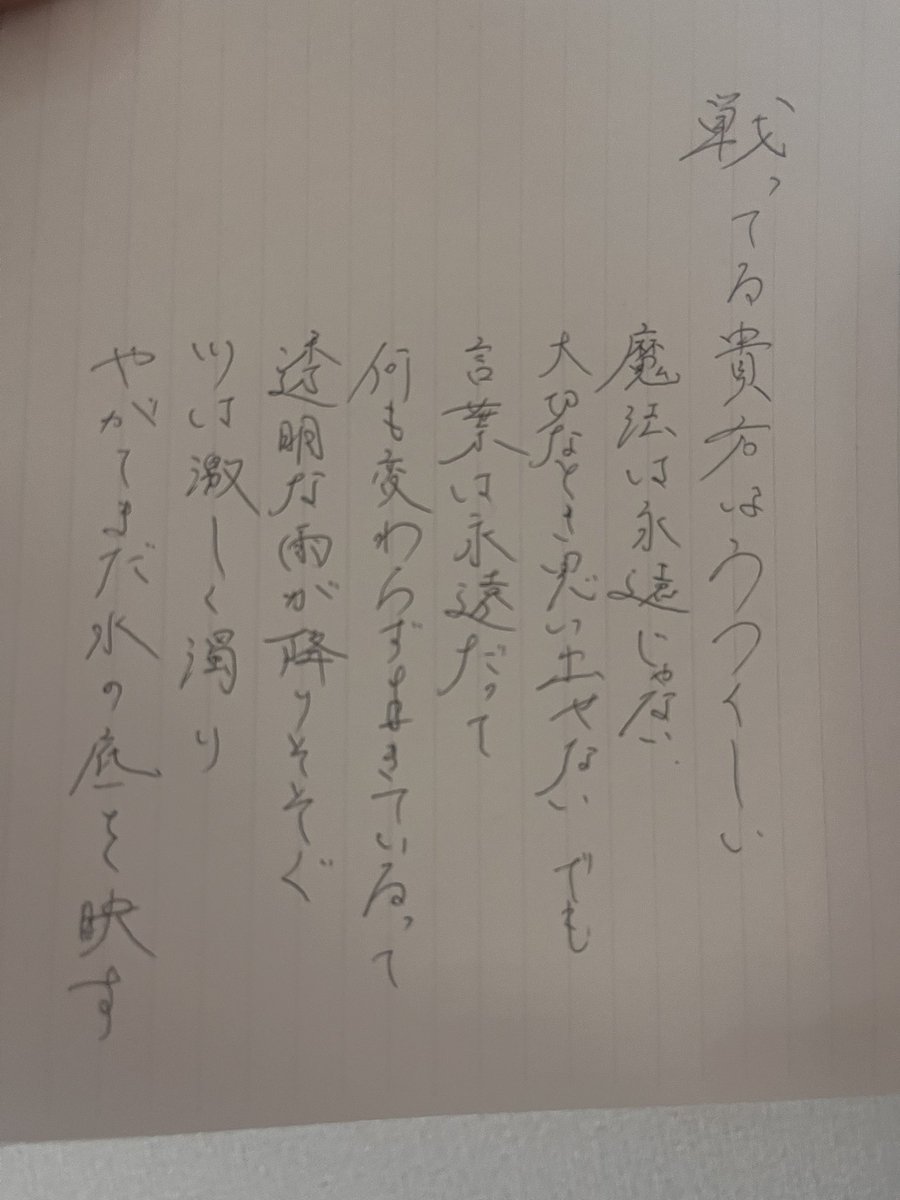 戦ってる貴方はうつくしい
魔法は永遠じゃない
大切なとき思い出せない でも
言葉は永遠だって
何も変わらず生きているって
透明な雨が降りそそぐ
川は激しく濁り
やがてまだ水の底を映す